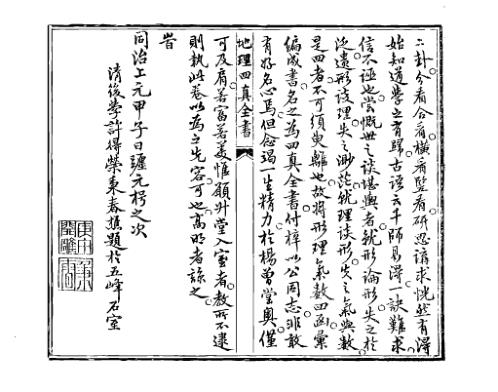 二卦分看合看橫看豎看研思講求恍然有得
始知道學之有歸古語云千師易得一訣難求
信不誣也嘗慨世之談堪輿者就形論形失之於
泛遺形談理失之渺茫就理談形失之氣與數
是四者不可須臾離也故將形理氣數四函彙
編成書名之為四真全書付梓以公同志非敢
有好名心焉但愈竭一生精力於楊曾堂奧僅
地理四真全書
可及肩若富若美惟願升堂入室者教所不逮
則執此卷以為之先容可也高明者諒之
峕
同治上元甲子日躔元枵之次
清後學許得榮東春樵題於五峰石室